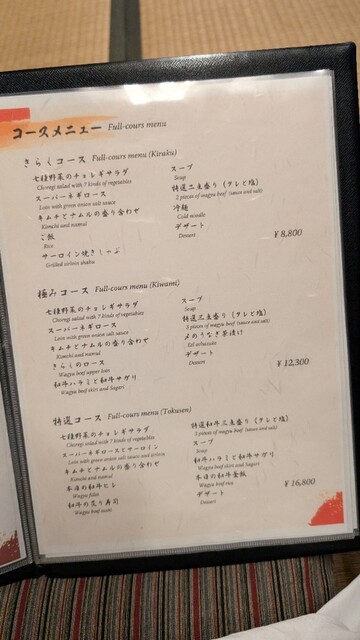 コースメニュー Full-cours menu
きらくコース Full-cours menu (Kiraku)
七種野菜のチョレギサラダ
Choregi salad with 7 kinds of vegetables
スーパーネギロース
Loin with green onion salt sauce
キムチとナムルの盛り合わせ
Kimchi and namul
ご飯
Rice
サーロイン焼きしゃぶ
Grilled sirloin shabu
スープ
Soup
特選二点盛り (タレと塩)
2 pieces of wagyu beef (sauce and salt)
冷麺
Cold noodle
デザート
Dessert
¥8,800
極みコース Full-cours menu (Kiwami)
七種野菜のチョレギサラダ
Choregi salad with 7 kinds of vegetables
スーパーネギロース
Loin with green onion salt sauce
キムチとナムルの盛り合わせ
Kimchi and namul
きらくのロース
Wagyu beef upper loin
和牛ハラミと和牛サガリ
Wagyu beef skirt and Sagari
スープ
Soup
特選三点盛り (タレと塩)
3 pieces of wagyu beef (sauce and salt)
〆のうなぎ茶漬け
Eel ochazuke
デザート
Dessert
¥12,300
特選コース Full-cours menu (Tokusen)
七種野菜のチョレギサラダ
Choregi salad with 7 kinds of vegetables
スーパーネギロースとサーロイン
Loin with green onion salt sauce and sirloin
キムチとナムルの盛り合わせ
Kimchi and namul
本日の和牛ヒレ
Wagyu fillet
和牛の炙り寿司
Wagyu beef sushi
特選和牛三点盛り (タレと塩)
3 pieces of wagyu beef (sauce and salt)
スープ
Soup
和牛ハラミと和牛サガリ
Wagyu beef skirt and Sagari
本日の和牛釜飯
Wagyu beef rice
デザート
Dessert
¥16,800